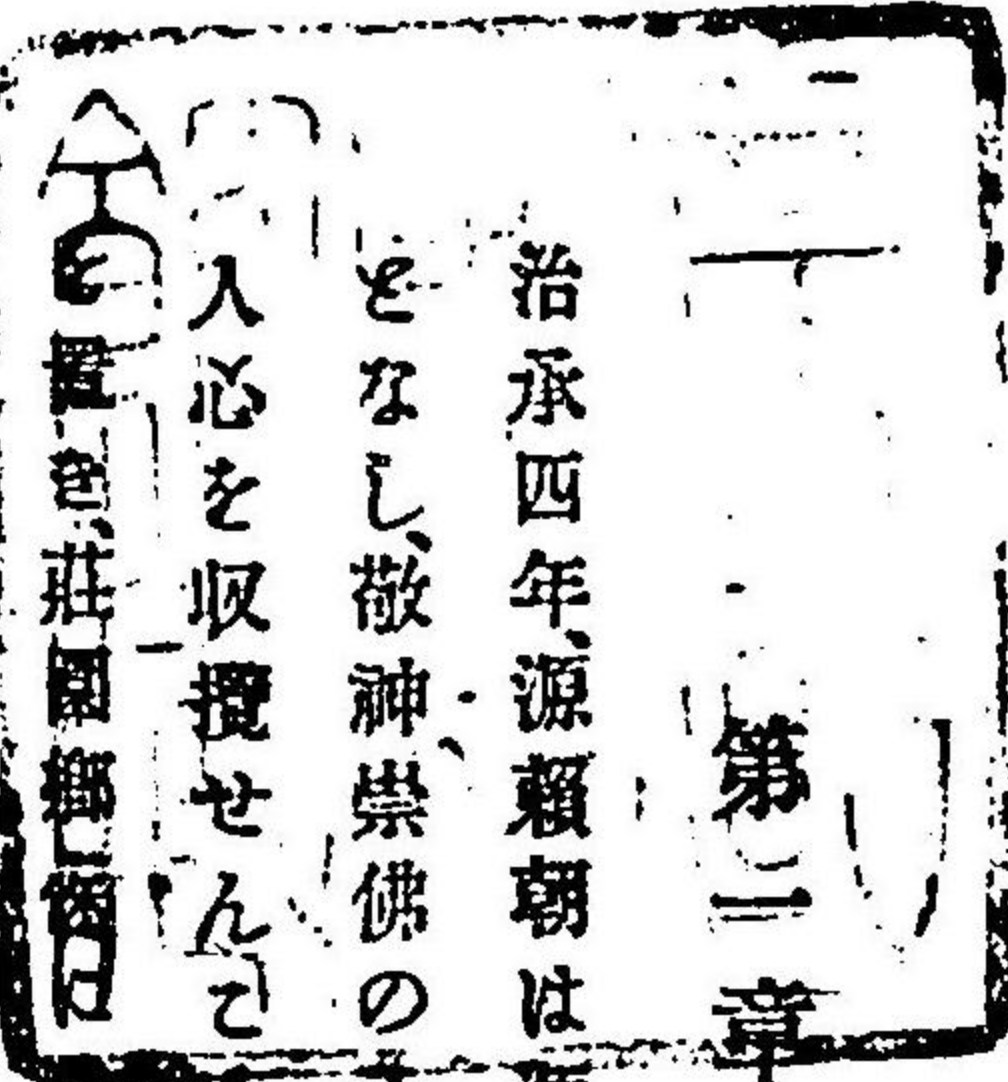 第二章
治承四年、源頼朝は
となし、敬神崇佛の
人心を収攬せんこ
を置き、莊園郷保に